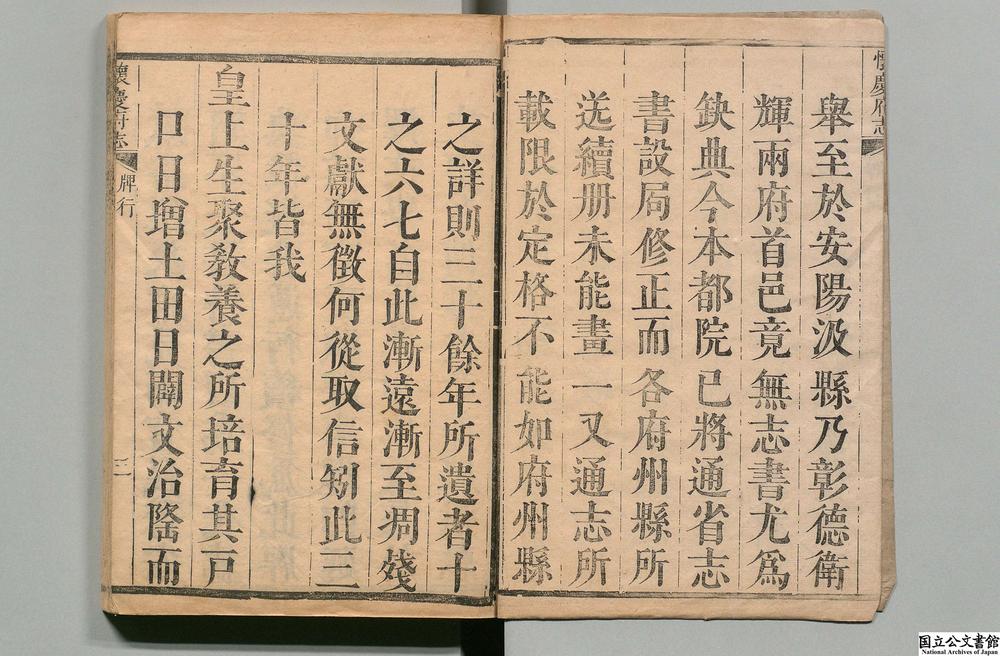 懷慶府志
舉至於安陽汲縣乃彰德衛
輝兩府首邑竟無志書尤爲
缺典今本都院已將通省志
書設局修正而各府州縣所
送續册未能畫一又通志所
載限於定格不能如府州縣
之詳則三十餘年所遺者十
之六七自此漸遠漸至凋殘
文獻無徵何從取信矧此三
十年皆我
皇上生聚敎養之所培育其戸
口日增土田日闢文治隆而
懷慶府志
牌行
三
国立公文書館
National Archives of Japan